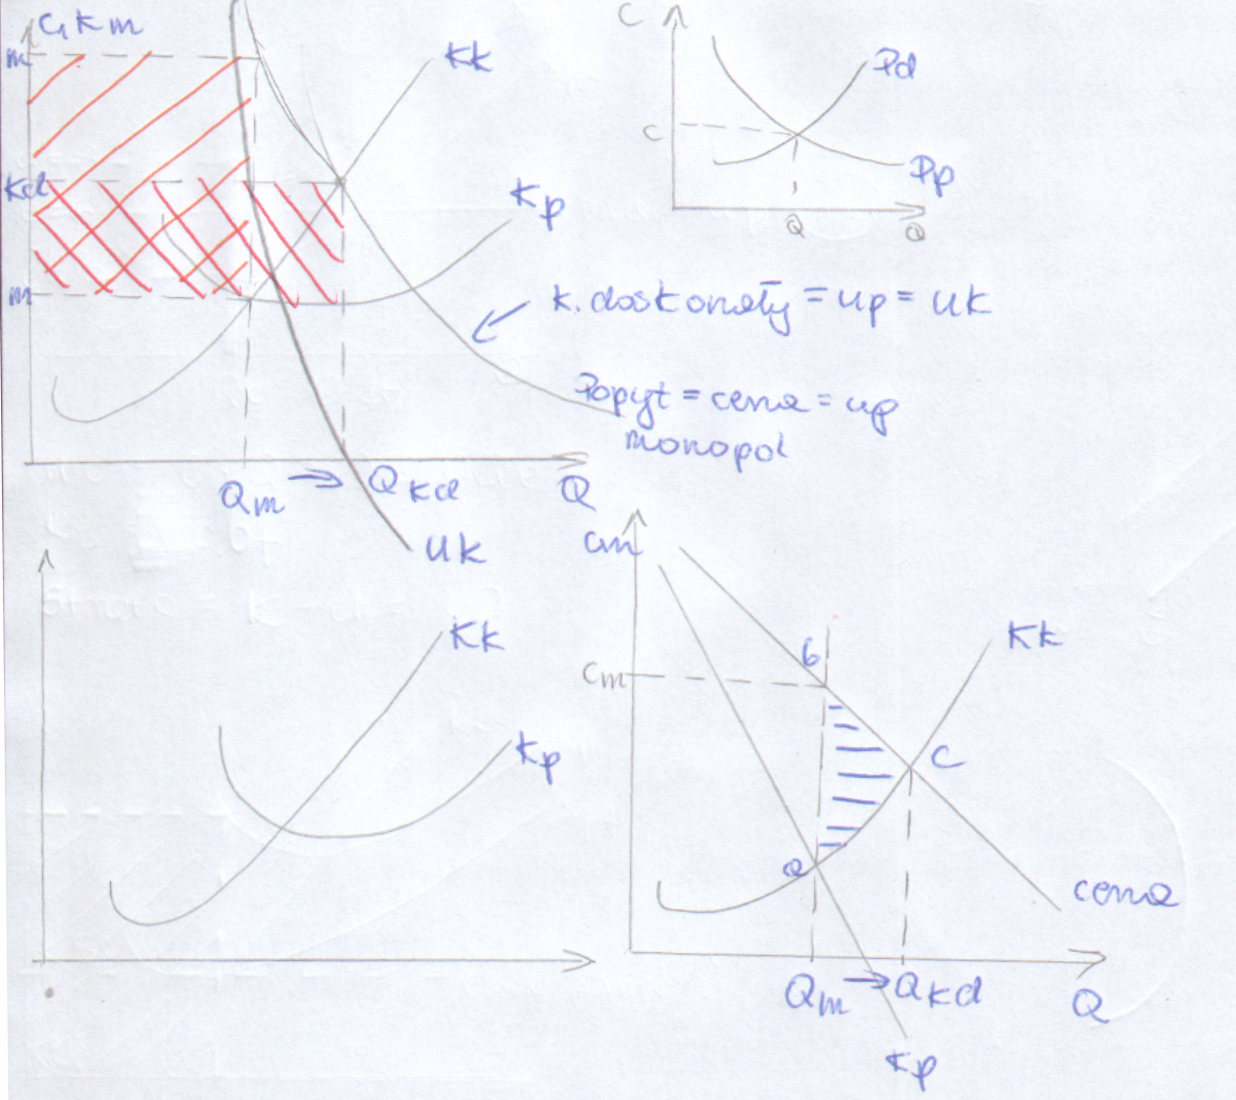 C, K m
m
Kk
Kd
Kp
m
k. doskonały = up = uk
Popyt = cena = up
monopol
Qm → Qkd
Q
uk
C
Pd
C
Pp
Q
Q
Kk
Kp
cm
b
Kk
Cm
C
a
cena
Qm → Qkd
Q
Kp